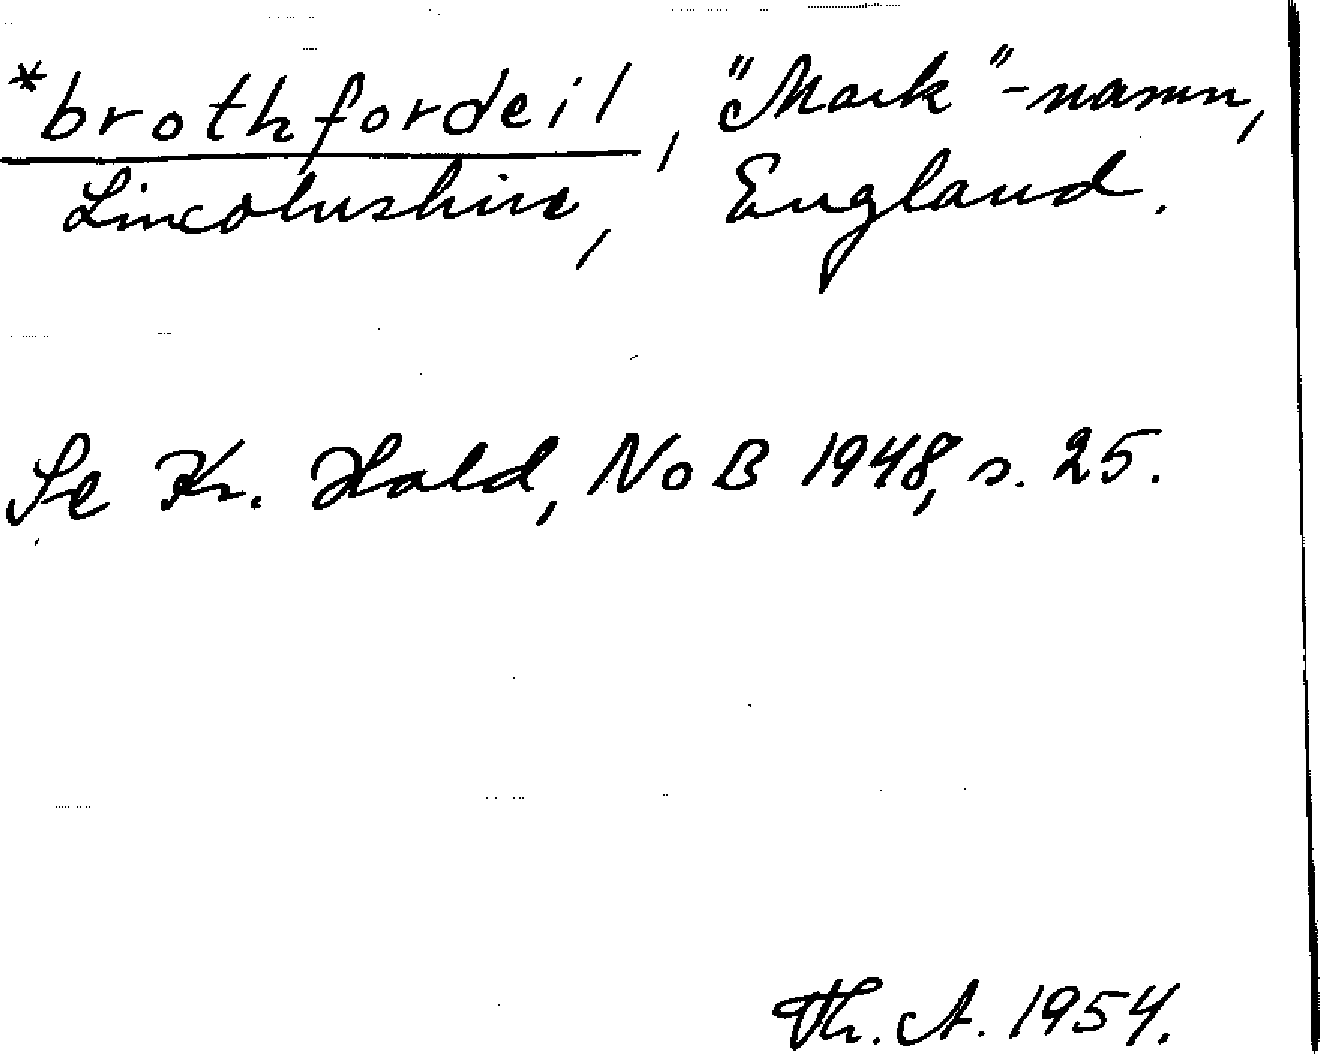 *brothfordeil, "Mark"-namn,
Lincolnshire, England.
Se Kr. Hald, NoB 1948, s. 25.
Th. A. 1954.